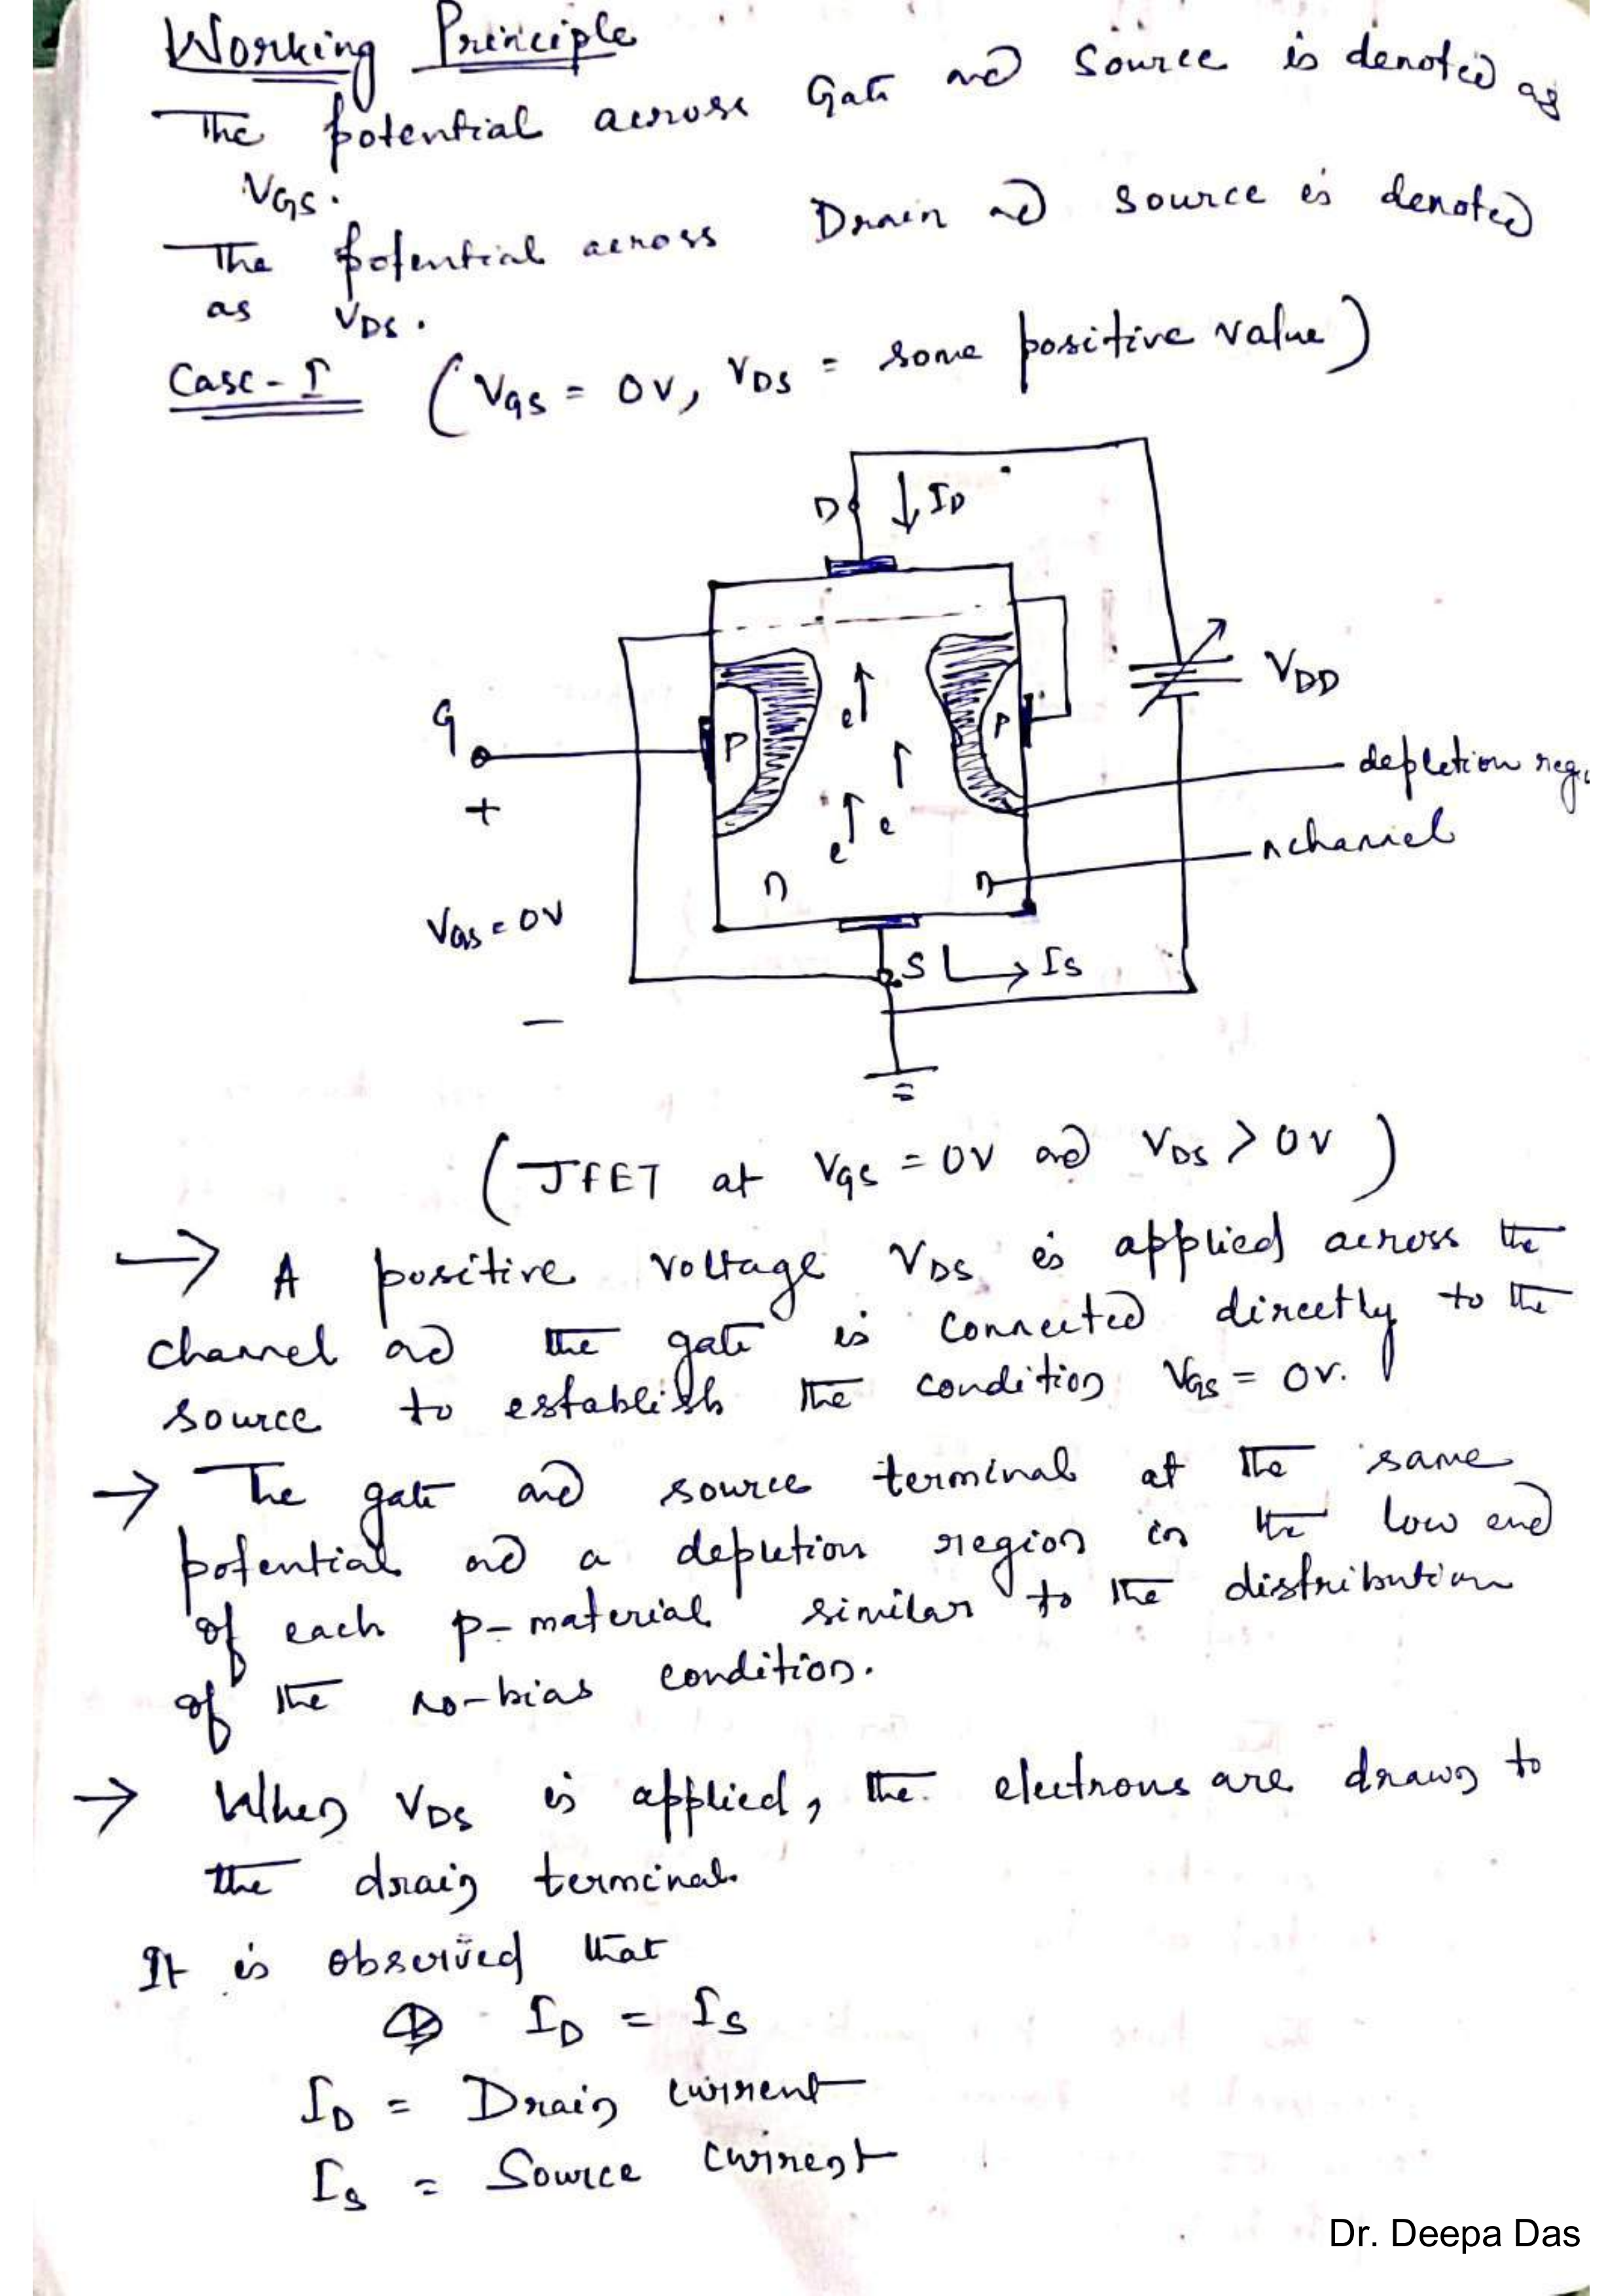 Working Principle
The potential across Gate and Source is denoted as
VGS.
The potential across Drain and source is denoted
as VDS.
Case-I (VGS = 0V, VDS = some positive value)
D ID
VDD
G
P
e
P
+
e
e
depletion reg
n channel
n
n
VGS = 0V
S IS
-
(JFET at VGS = 0V and VDS > 0V)
→ A positive voltage VDS is applied across the
channel and the gate is connected directly to the
source to establish the condition VGS = 0V.
→ The gate and source terminal at the same
potential and a depletion region in the low end
of each p-material similar to the distribution
of the no-bias condition.
→ When VDS is applied, the electrons are drawn to
the drain terminal.
It is observed that
ID = IS
ID = Drain current
IS = Source current
Dr. Deepa Das